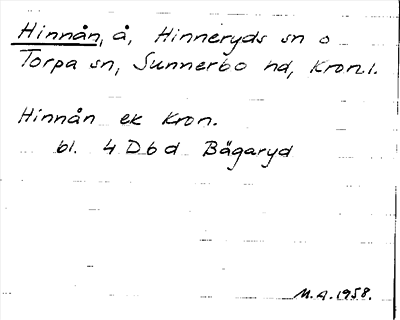 Hinnån, å, Hinneryds sn o
Torpa sn, Sunnerbo hd, Kron.l.
Hinnån ek Kron.
bl. 4 D 6 d Bägaryd
M.A. 1958.